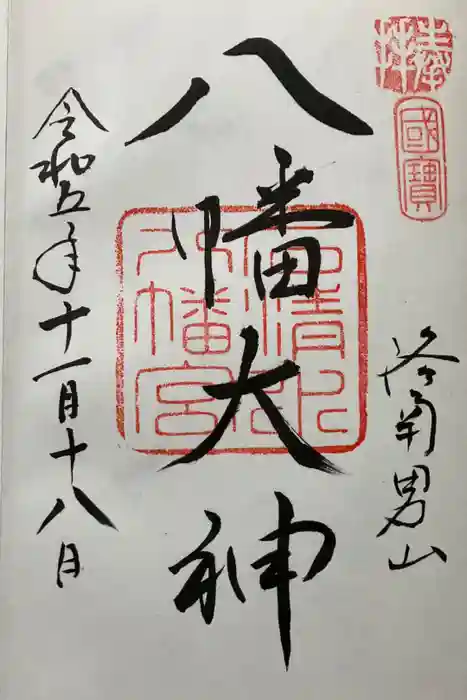 奉拝
國寶
洛南男山
八幡大神
石清水八幡宮
令和五年十一月十八日